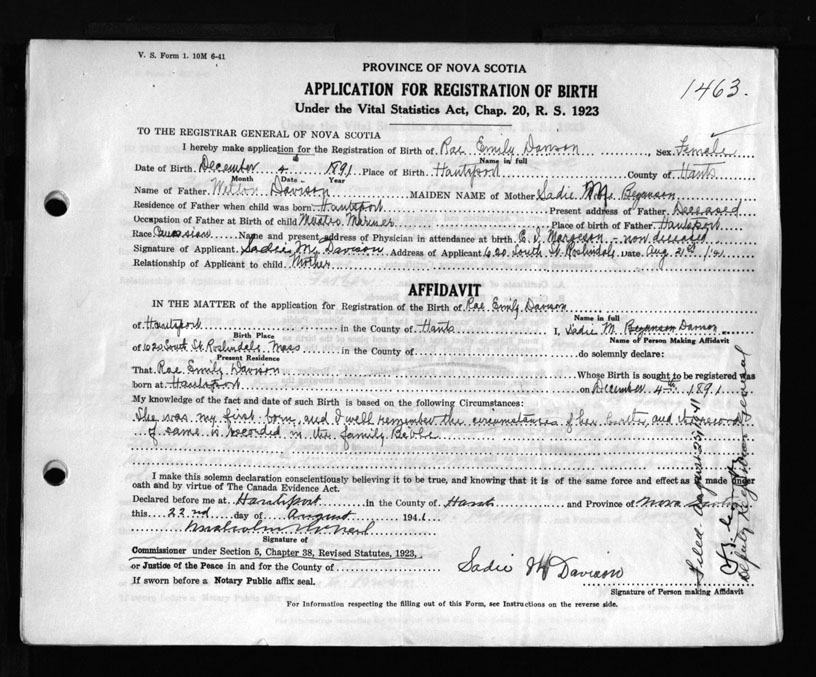 V. S. Form 1. 10M 6-41
PROVINCE OF NOVA SCOTIA
APPLICATION FOR REGISTRATION OF BIRTH
1463.
Under the Vital Statistics Act, Chap. 20, R. S. 1923
TO THE REGISTRAR GENERAL OF NOVA SCOTIA
I hereby make application for the Registration of Birth of Rae Emily Davison Sex Female
Name in full
Date of Birth December 4th 1891 Place of Birth Hantsport County of Hants
Month Date Year
Name of Father Davison MAIDEN NAME of Mother Sadie
Residence of Father when child was born Hantsport Present address of Father Deceased
Occupation of Father at Birth of child Master Mariner Place of birth of Father Hantsport
Race Name and present address of Physician in attendance at birth E. Margeson - now diseased
Signature of Applicant Sadie Davison Address of Applicant 620 South St Roslindale Date Aug 21st
Relationship of Applicant to child Mother
AFFIDAVIT
IN THE MATTER of the application for Registration of the Birth of Rae Emily Davison
Name in full
of Hantsport in the County of Hants I, Sadie M. Davison
Birth Place Name of Person Making Affidavit
of 620 South St Roslindale Mass do solemnly declare:
Present Residence
That Rae Emily Davison Whose Birth is sought to be registered was
born at Hantsport on December 4th 1891
My knowledge of the fact and date of such Birth is based on the following Circumstances:
She was my first born, and I well remember the circumstances of her birth, and the record
of same is recorded in the family Bible
I make this solemn declaration conscientiously believing it to be true, and knowing that it is of the same force and effect as if made under
oath and by virtue of The Canada Evidence Act.
Declared before me at Hantsport in the County of Hants and Province of Nova Scotia
this 22nd day of August 1941
Malcolm
Signature of
Commissioner under Section 5, Chapter 38, Revised Statutes, 1923,
or Justice of the Peace in and for the County of
Sadie M Davison
If sworn before a Notary Public affix seal.
Signature of Person making Affidavit
For Information respecting the filling out of this Form, see Instructions on the reverse side.
Filed August 25 1941
Deputy Registrar General